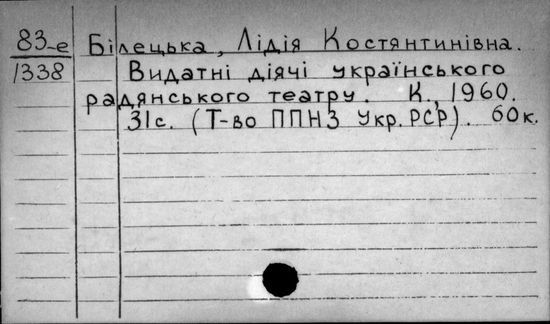 83-е Білецька, Лідія Костянтинівна.
1338 Видатні діячі українського
радянського театру. К., 1960.
31с. (Т-во ППНЗ Укр. РСР). 60к.